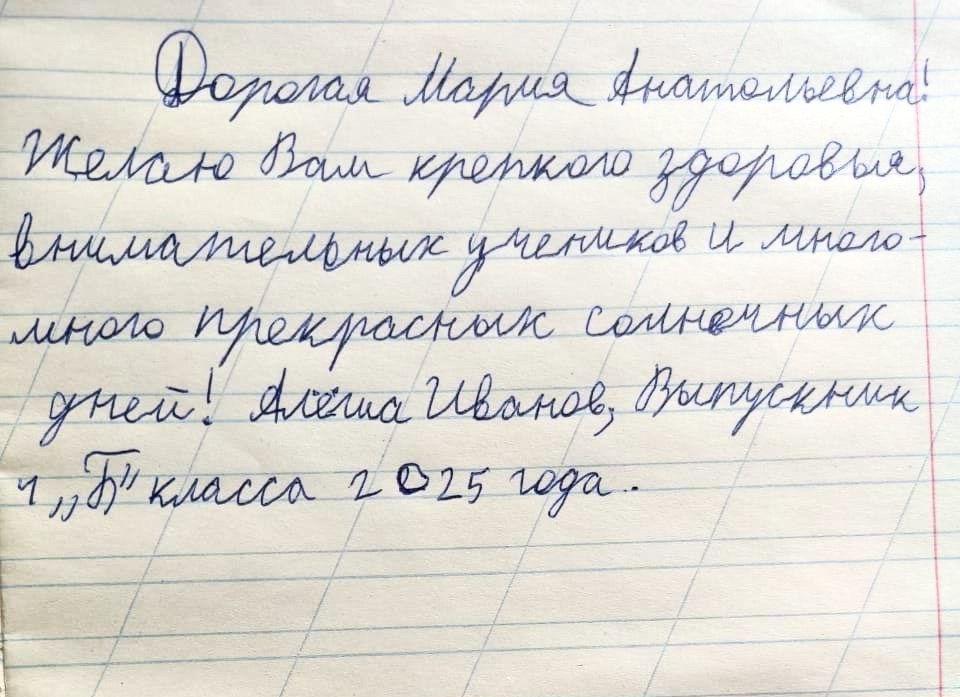 Дорогая Мария Анатольевна!
Желаю Вам крепкого здоровья,
внимательных учеников и много-
много прекрасных солнечных
дней! Алёша Иванов, Выпускник
4 „Б" класса 2025 года.